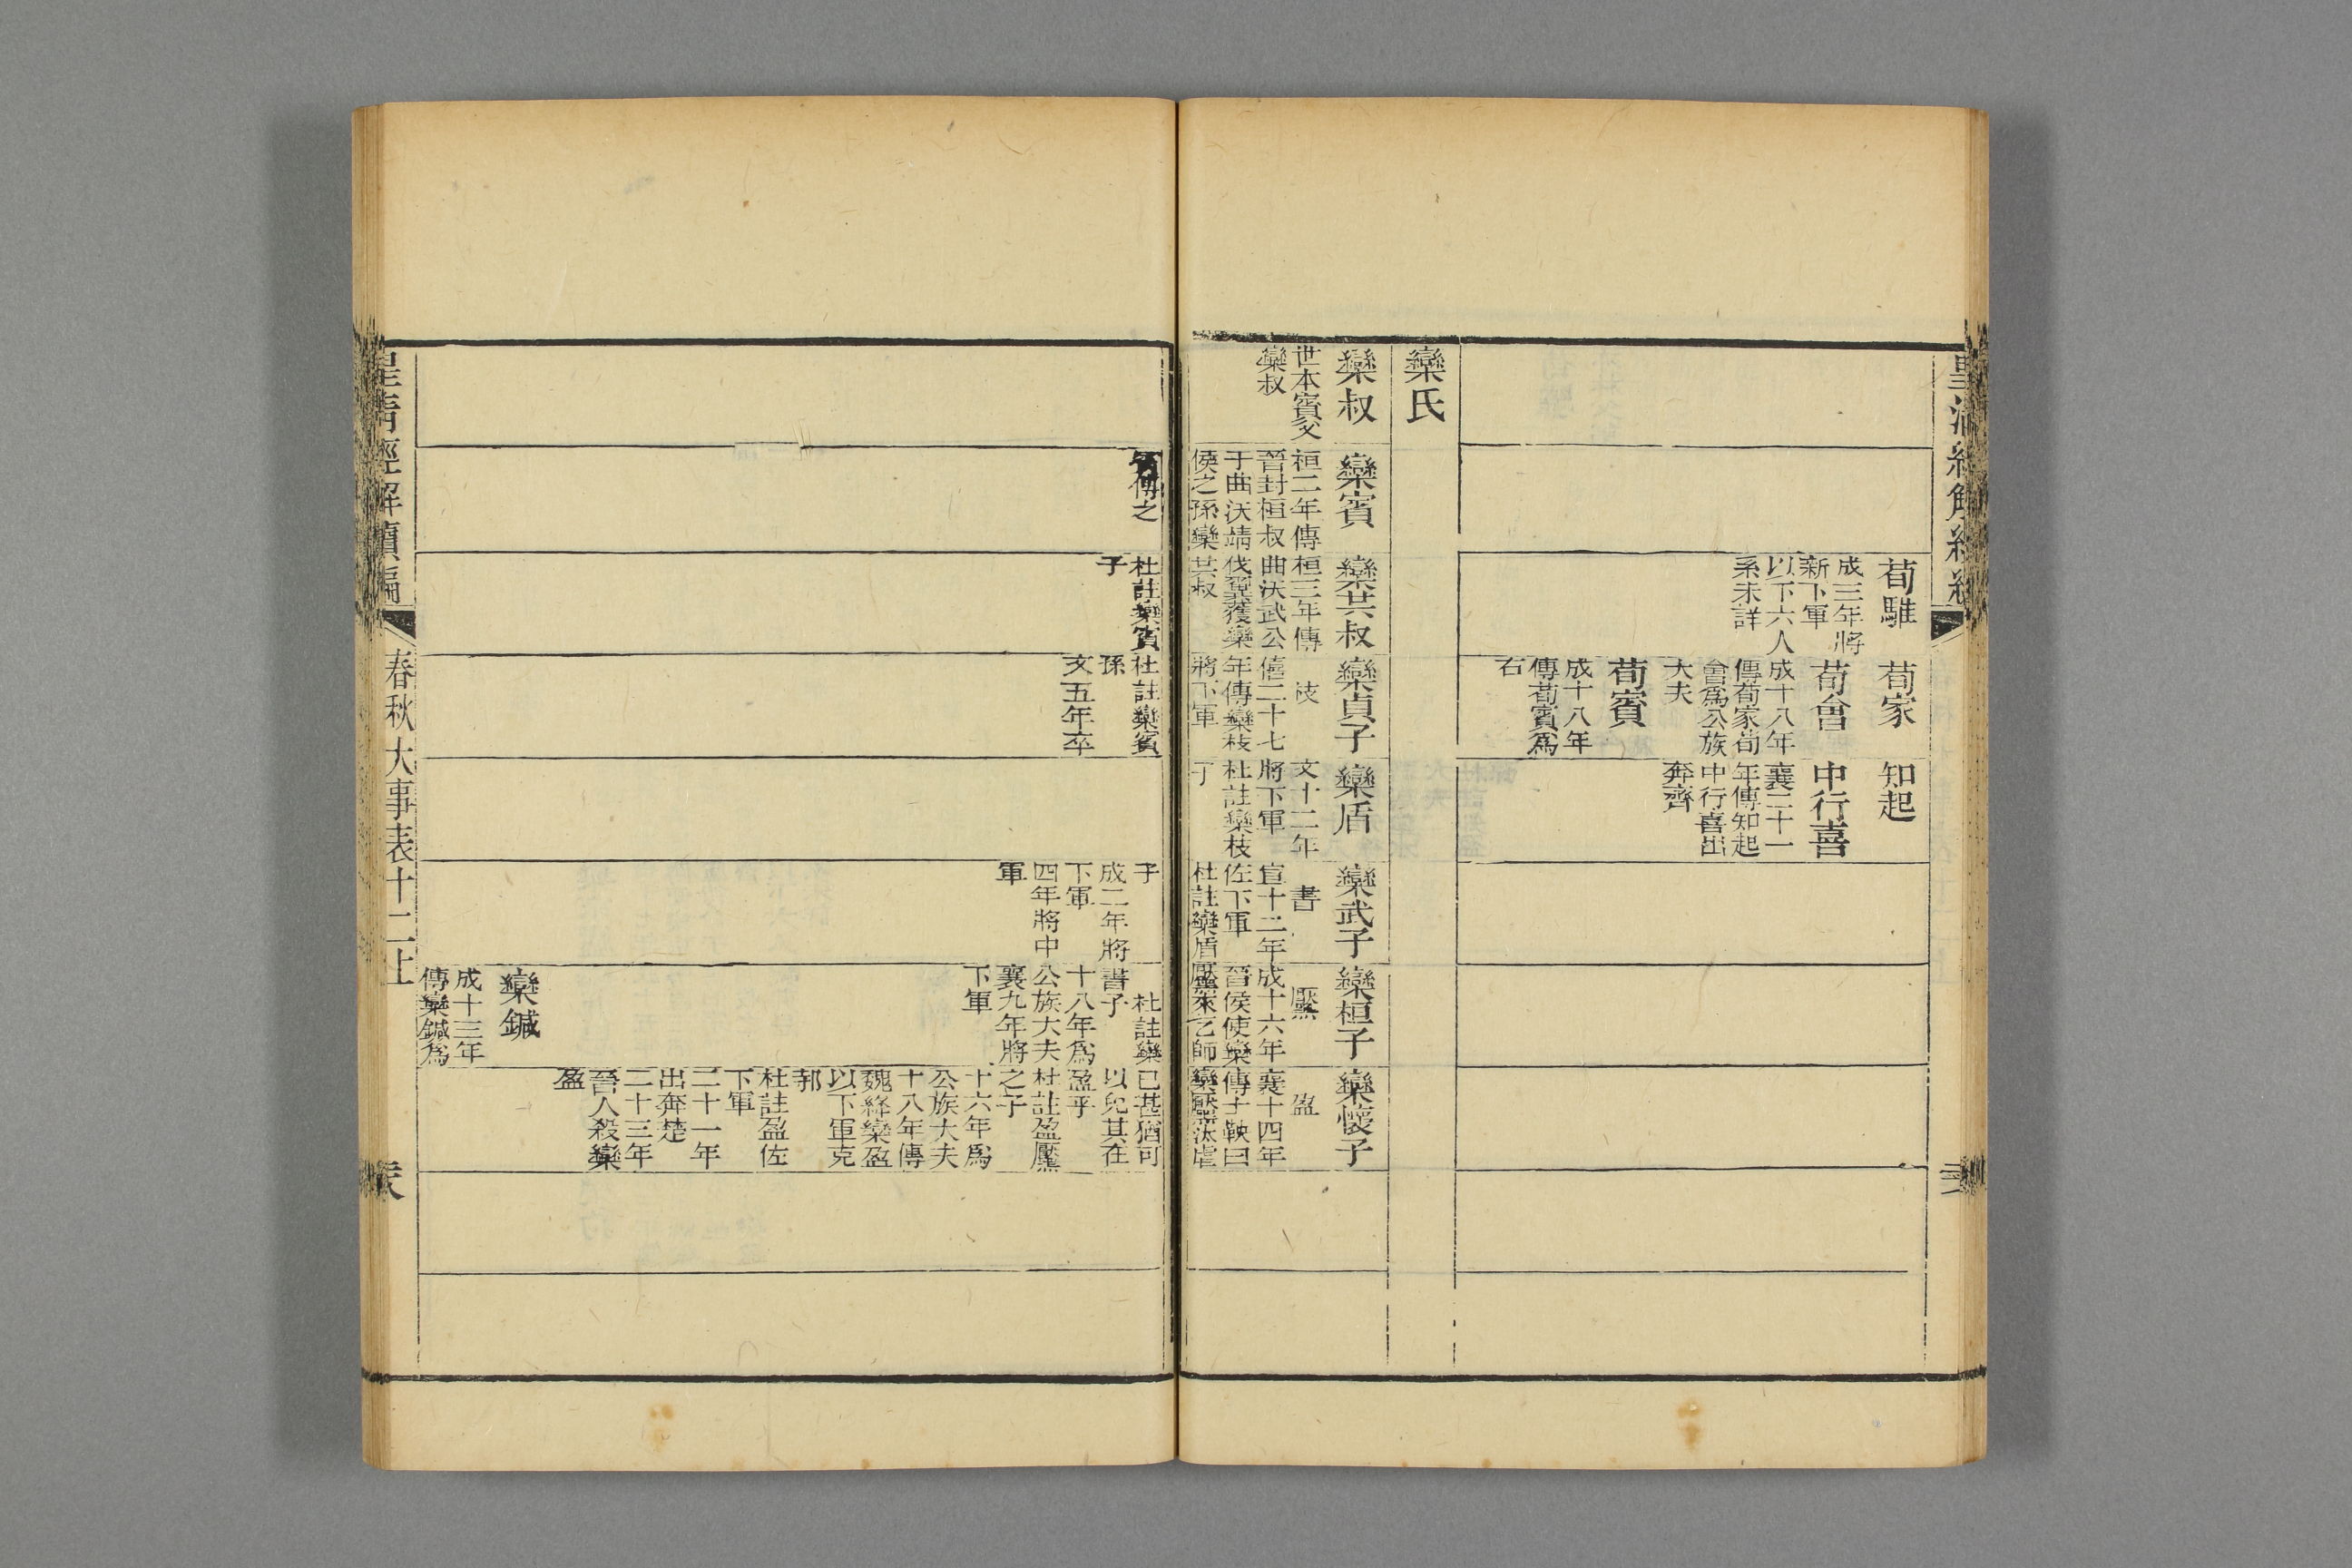 荀騅
成三年將
新下軍
以下六人
系未詳
荀家
荀會
成十八年
傳荀家荀
會爲公族
大夫
荀賓
成十八年
傳荀賓爲
右
知起
中行喜
襄二十一
年傳知起
中行喜出
奔齊
欒氏
欒叔
世本賓父
欒叔
欒賓
桓二年傳
晉封桓叔
于曲沃靖
侯之孫欒
賓傅之
欒共叔
桓三年傳
曲沃武公
伐翼獲欒
共叔
杜註欒賓
子
欒貞子
枝
僖二十七
年傳欒枝
將下軍
杜註欒賓
孫
文五年卒
欒盾
文十二年
將下軍
杜註欒枝
子
欒武子
書
宣十二年
佐下軍
杜註欒盾
子
成二年將
下軍
四年將中
軍
欒桓子
黶
成十六年
晉侯使欒
黶來乞師
杜註欒
書子
十八年爲
公族大夫
襄九年將
下軍
欒鍼
成十三年
傳欒鍼爲
欒懷子
盈
襄十四年
傳士鞅曰
欒黶汰虐
已甚猶可
以免其在
盈乎
杜註盈黶
之子
十六年爲
公族大夫
十八年傳
魏絳欒盈
以下軍克
邿
杜註盈佐
下軍
二十一年
出奔楚
二十三年
晉人殺欒
盈
皇淸經解續編
春秋大事表十二上